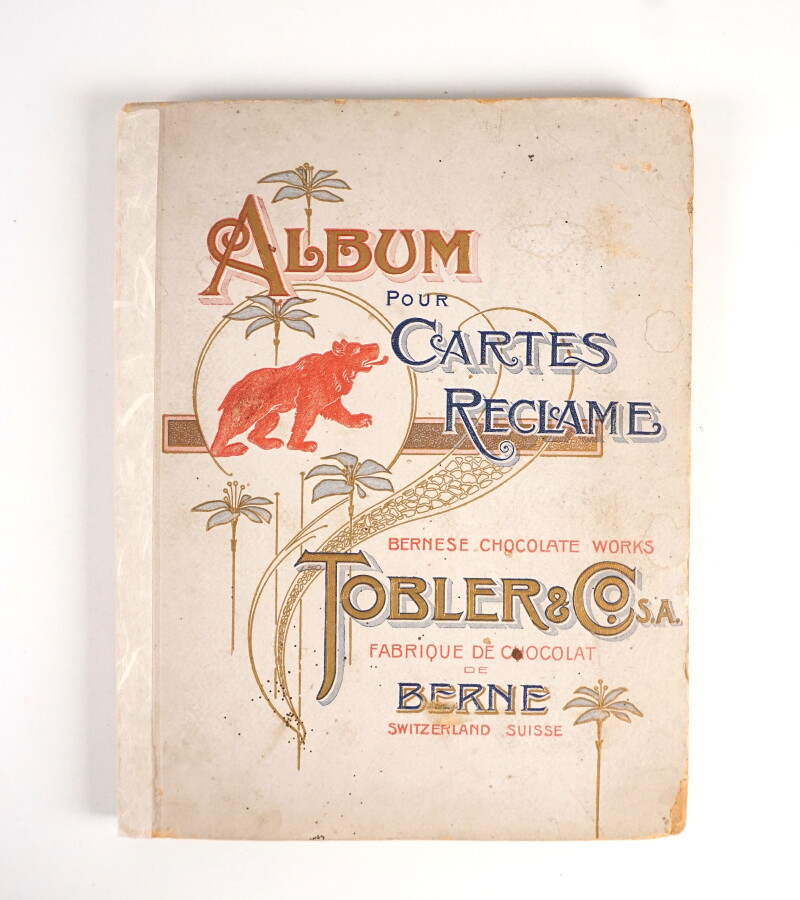 ALBUM
POUR
CARTES
RECLAME
BERNESE CHOCOLATE WORKS
TOBLER & Co. S.A.
FABRIQUE DE CHOCOLAT
DE
BERNE
SWITZERLAND SUISSE